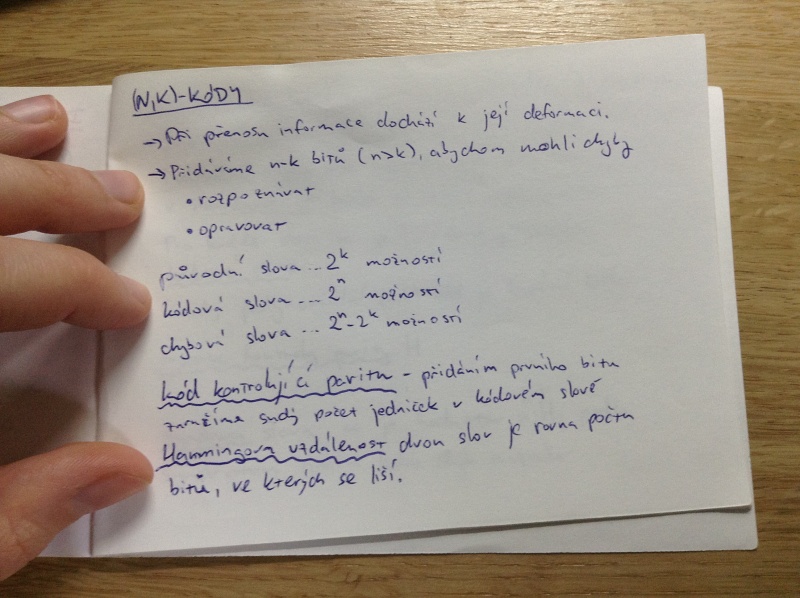 (N,K)-KÓDY
→ Při přenosu informace dochází k její deformaci.
→ Přidáváme n-k bitů (n>k), abychom mohli chyby
• rozpoznávat
• opravovat
původní slova ... 2^k možností
kódová slova ... 2^n možností
chybová slova ... 2^n-2^k možností
kód kontrolující paritu - přidáním prvního bitu
zaručíme sudý počet jedniček v kódovém slově
Hammingova vzdálenost dvou slov je rovna počtu
bitů, ve kterých se liší.